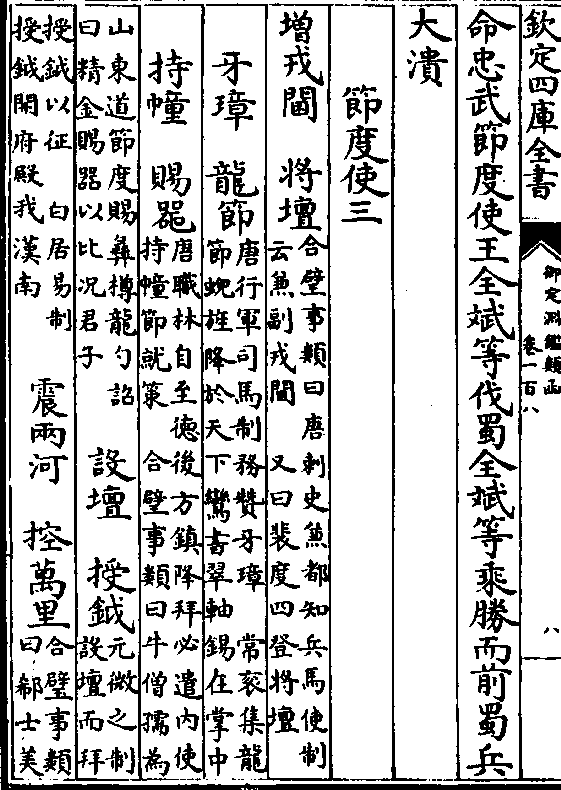 欽定四庫全書
御定淵鑑類函
卷一百八
八
命忠武節度使王全斌等伐蜀全斌等乘勝而前蜀兵
大潰
節度使三
增戎閫　將壇
合璧事類曰唐刺史兼都知兵馬使制
云兼副戎閫　又曰裴度四登將壇
牙璋　龍節
唐行軍司馬制務贊牙璋　常衮集龍
節蜺旌降於天下鸞書翠軸錫在掌中
持幢　賜器
唐職林自至德後方鎮降拜必遣內使
持幢節就策　合璧事類曰牛僧孺為
山東道節度賜彝樽龍勺詔
曰精金賜器以比況君子
設壇　授鉞
元微之制
設壇而拜
授鉞以征　白居易制
授鉞開府殿我漢南
震兩河　控萬里
合璧事類
曰郗士美